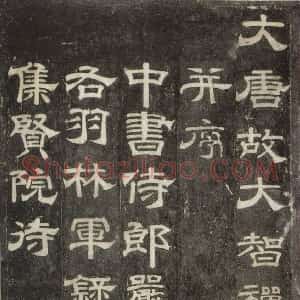 大唐故大智禪
并序
中書侍郎嚴
右羽林軍錄
集賢院待
Shufaziliao.com